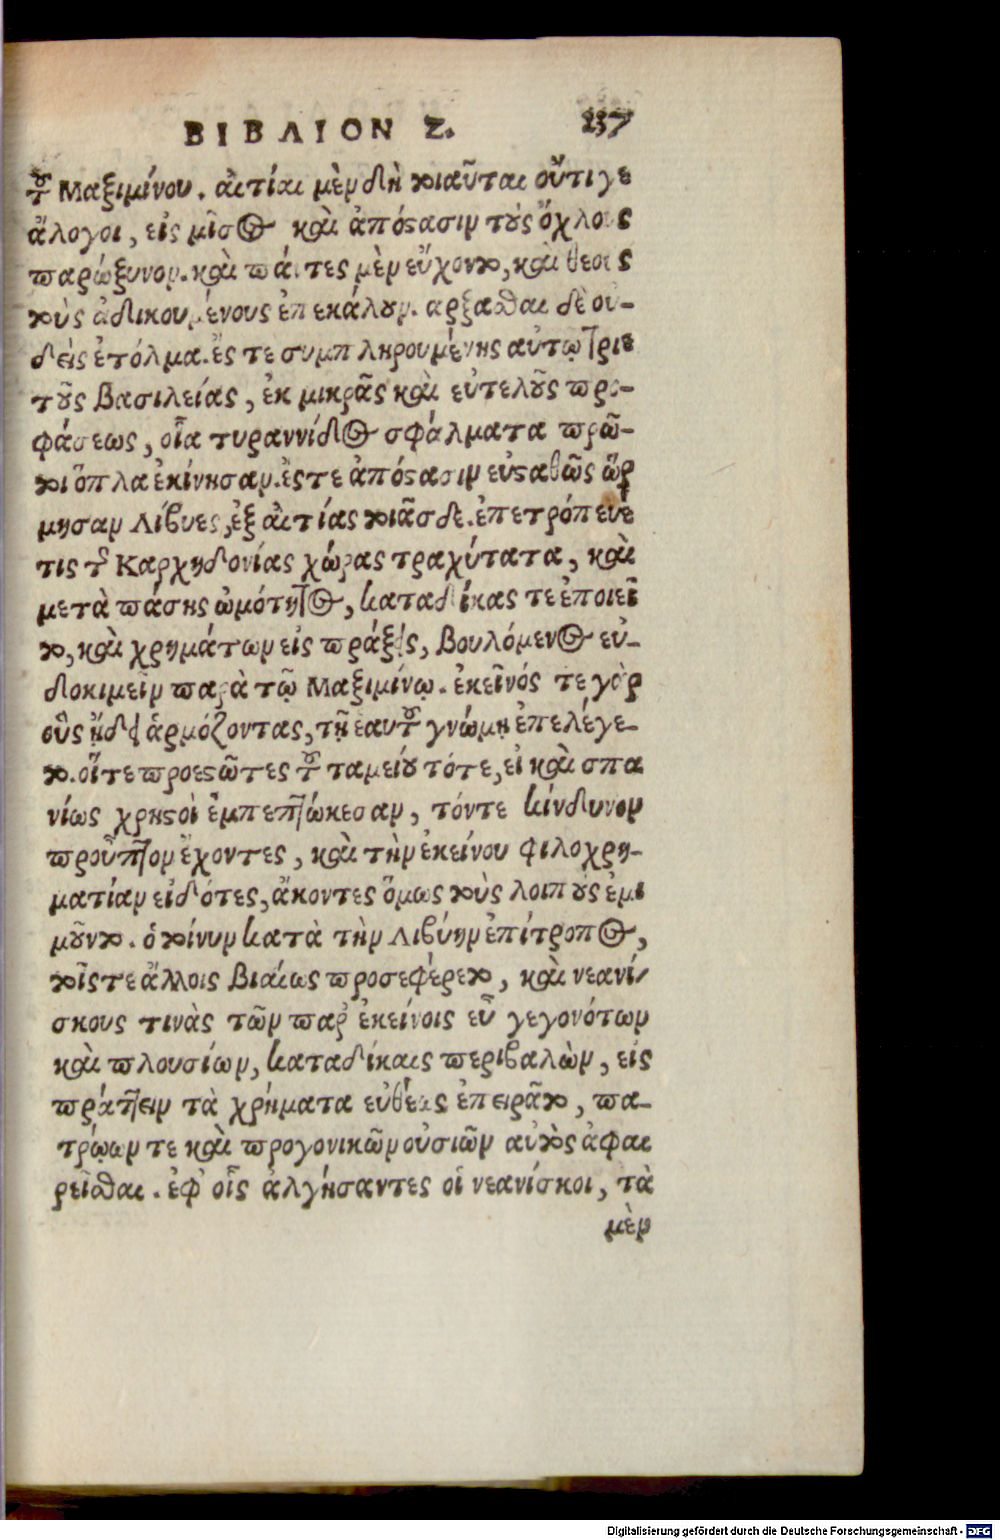 ΒΙΒΛΙΟΝ Ζ. 237
τοῦ Μαξιμίνου. αἰτίαι μὲν δὴ τοιαῦται οὔτι γε
ἄλογοι, εἰς μῖσος καὶ ἀπόστασιν τοὺς ὄχλους
παρώξυνον. καὶ πάντες μὲν εὔχοντο, καὶ θεοὺς
τοὺς ἀδικουμένους ἐπεκάλουν. αρξασθαι δὲ οὐ-
δεὶς ἐτόλμα. ἔς τε συμπληρουμένης αὐτῷ τριε
τοῦς βασιλείας, ἐκ μικρᾶς καὶ εὐτελοῦς προ-
φάσεως, οἷα τυραννίδος σφάλματα πρῶ-
τοι ὅπλα ἐκίνησαν. ἔς τε ἀπόστασιν εὐσταθῶς ὥρ
μησαν Λίβυες, ἐξ αἰτίας τοιᾶσδε. ἐπετρόπευέ
τις τῆς Καρχηδονίας χώρας τραχύτατα, καὶ
μετὰ πάσης ὠμότητος, καταδίκας τε ἐποιεῖ
το, καὶ χρημάτων εἰς πράξεις, βουλόμενος εὐ-
δοκιμεῖν παρὰ τῷ Μαξιμίνῳ. ἐκεῖνός τε γὰρ
οὓς ᾔδει ἁρμόζοντας, τῇ ἑαυτοῦ γνώμῃ ἐπελέγε-
το. οἵ τε προεστῶτες τοῦ ταμείου τότε, εἰ καὶ σπα
νίως χρηστοὶ ἐμπεπτώκεσαν, τόν τε κίνδυνον
προῦπτον ἔχοντες, καὶ τὴν ἐκείνου φιλοχρη-
ματίαν εἰδότες, ἄκοντες ὅμως τοὺς λοιποὺς ἐμι
μοῦντο. ὁ τοίνυν κατὰ τὴν Λιβύην ἐπίτροπος,
τοῖς τε ἄλλοις βιαίως προσεφέρετο, καὶ νεανί-
σκους τινὰς τῶν παρ' ἐκείνοις εὖ γεγονότων
καὶ πλουσίων, καταδίκαις περιβαλὼν, εἰς
πράττειν τὰ χρήματα εὐθέως ἐπειρᾶτο, πα-
τρῴων τε καὶ προγονικῶν οὐσιῶν αὐτοὺς ἀφαι
ρεῖσθαι. ἐφ' οἷς ἀλγήσαντες οἱ νεανίσκοι, τὰ
μὲν
Digitalisierung gefördert durch die Deutsche Forschungsgemeinschaft - DFG